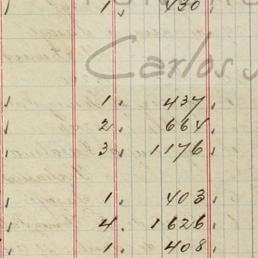 1, 430.
Carlos
1. 437.
2. 664.
3, 1176,
1. 403.
4. 1626.
1. 408,